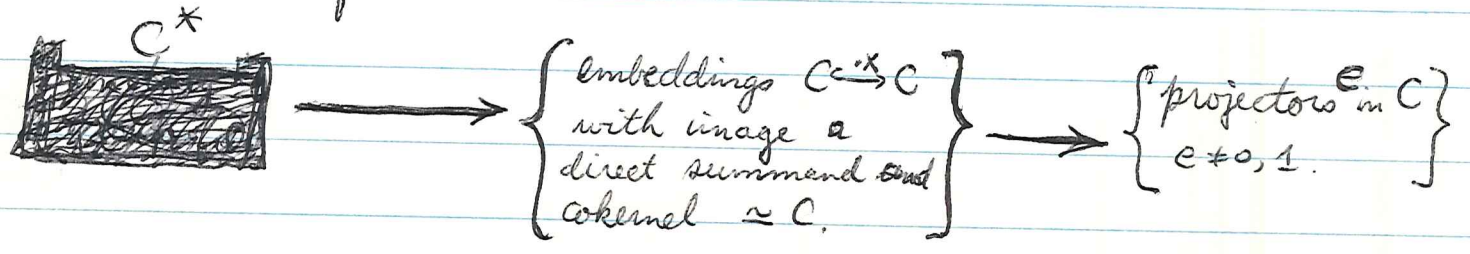 C*
embeddings C ↪ C ·x
with image a
direct summand and
cokernel ≃ C.
projectors e in C
e ≠ 0, 1.